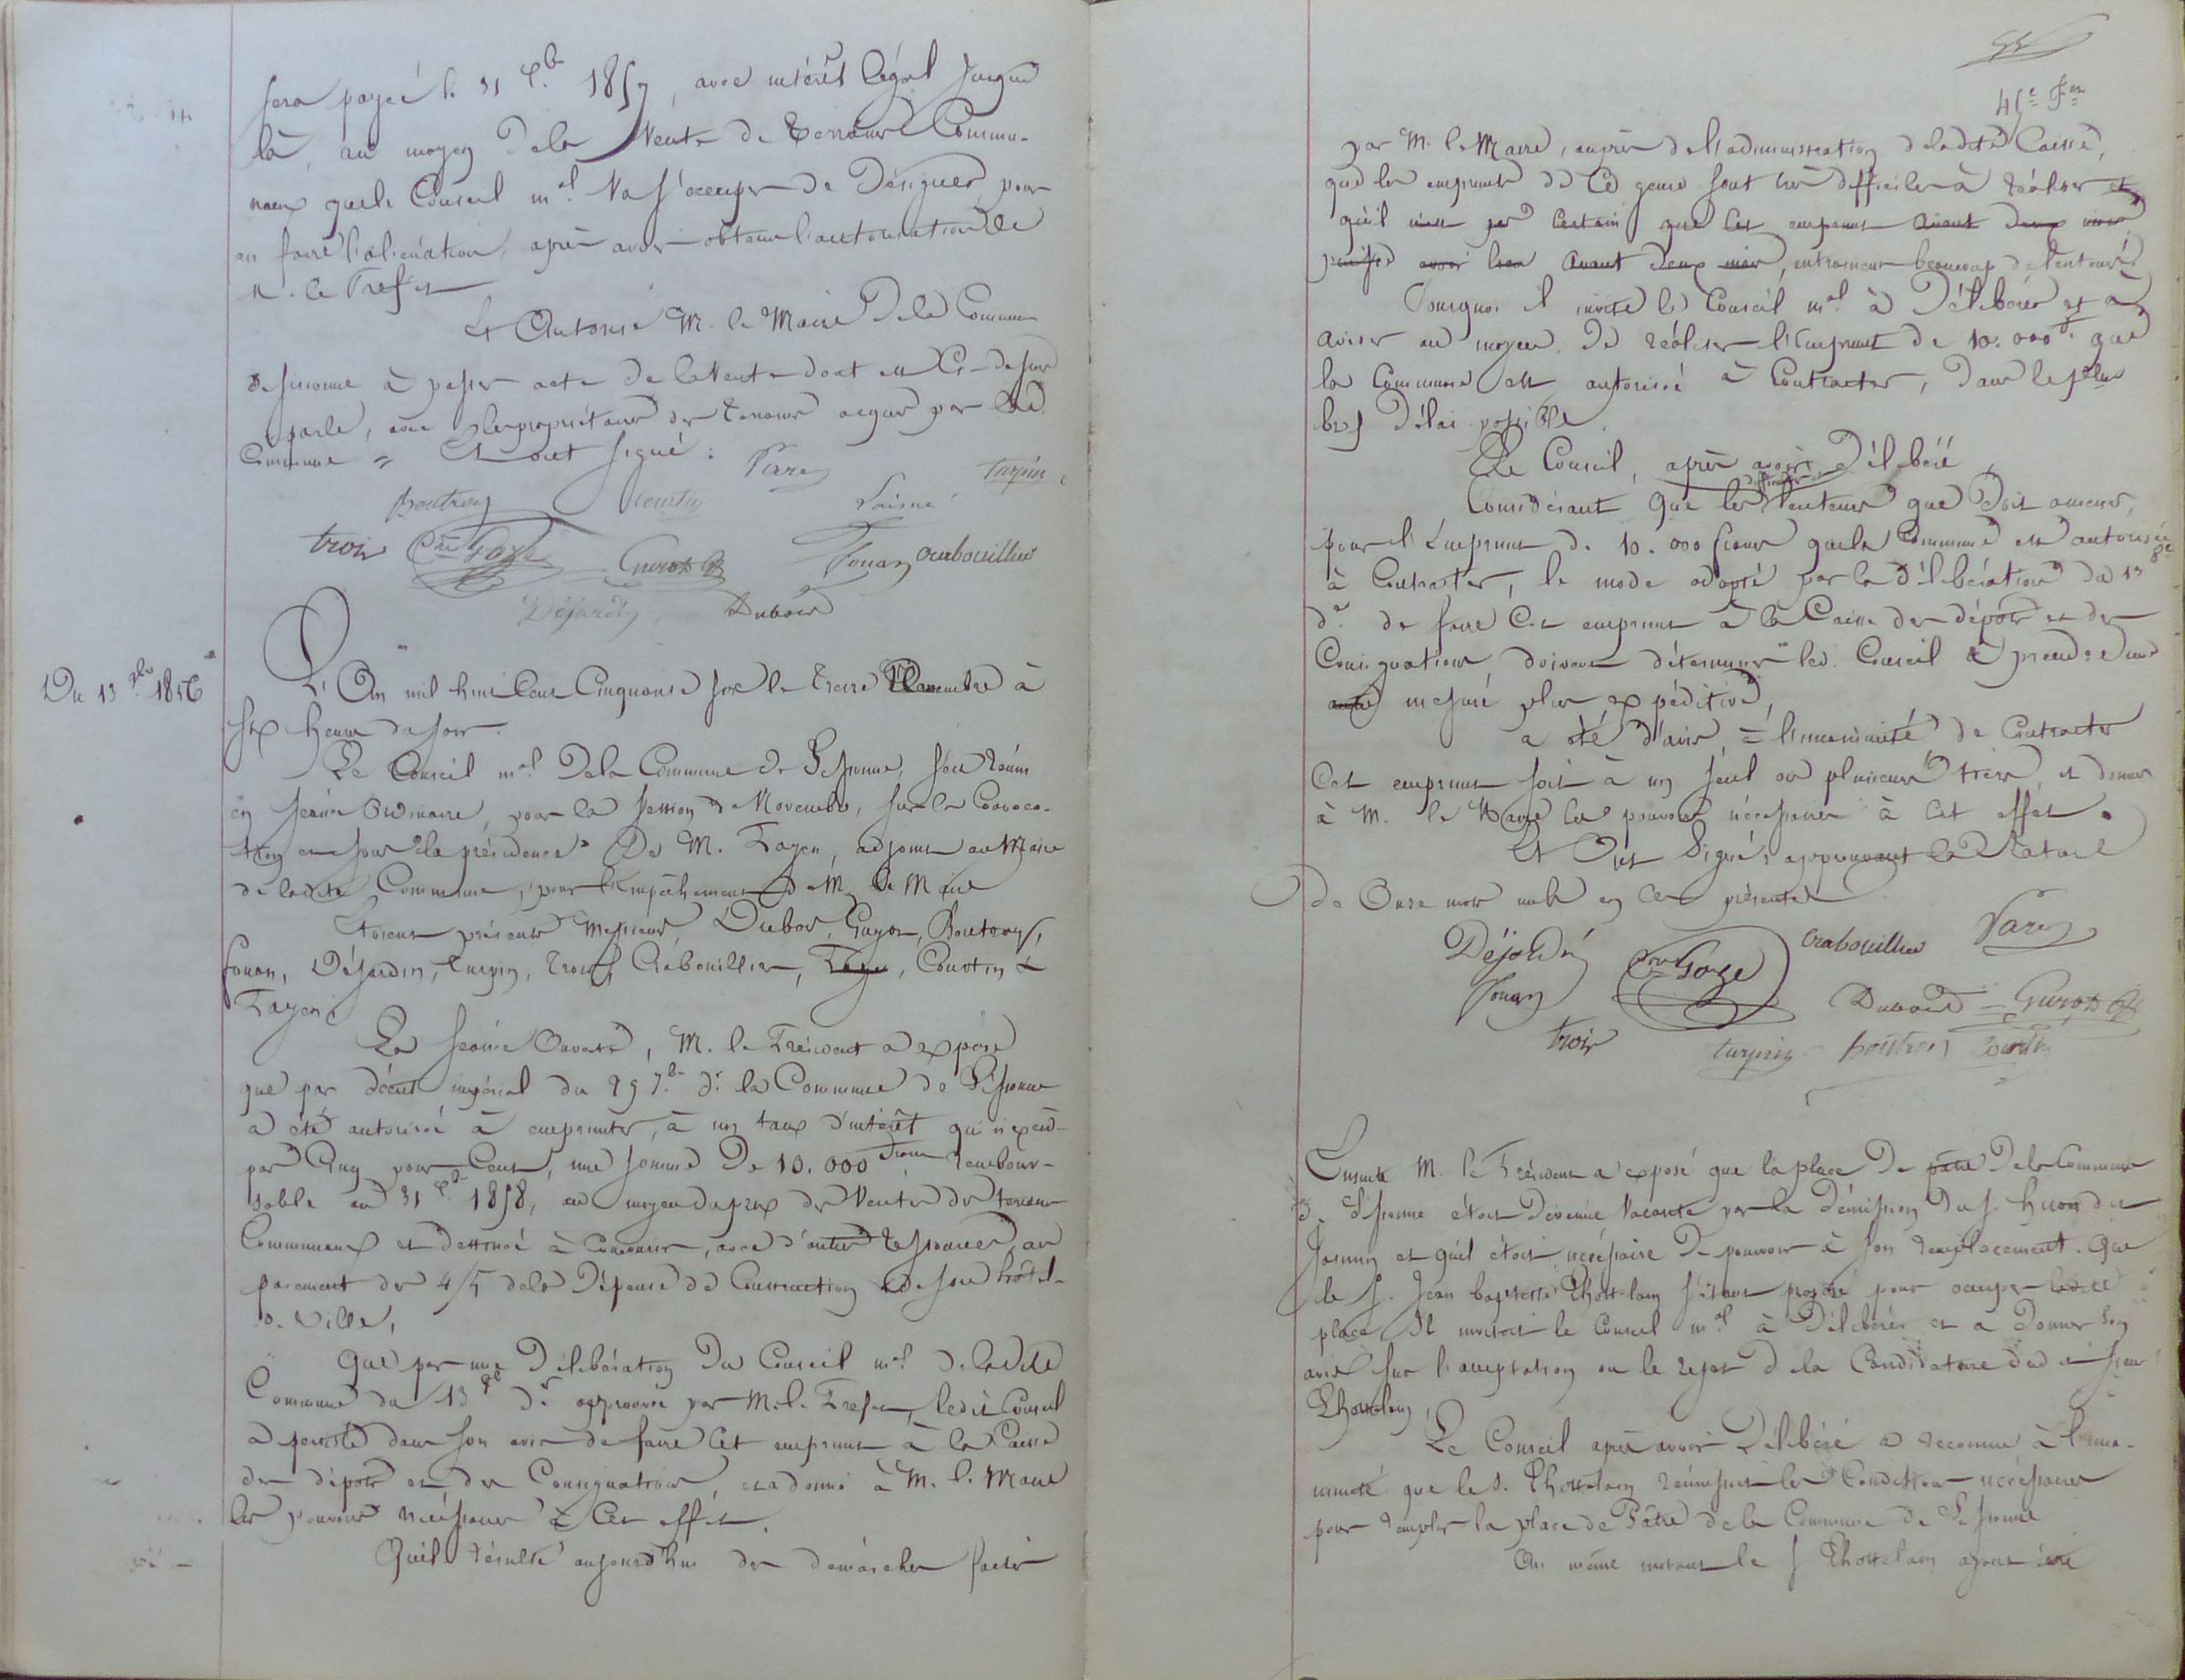 sera payé le 31 Xbre 1857, avec intérêt légal jusque
là, au moyen de la Vente de terrains Commu-
naux que le Conseil mal va s'occuper de désigner, pour
en faire l'aliénation, après avoir obtenu l'autorisation de
M. le Préfet
Et Autorise M. le Maire de la Commune
de Sissonne à passer acte de la Vente dont est Ci-dessus
parlé, avec les propriétaires des terrains acquis par lad.
Commune = Et ont signé :
Paré turpin
Boutroy Courtin Laisné
trois Gaye Guyot Fouan Crabouillier
Déjardin Dubois
Du 13 9bre 1856
L'An mil huit Cent Cinquante six le treize Novembre à
six heures du soir.
Le Conseil mal de la Commune de Sissonne, s'est réuni
en séance Ordinaire, pour la session de Novembre, sur la Convoca-
tion et sous la présidence de M. Fayen, adjoint au Maire
de ladite Commune, pour l'empêchement de M. le Maire
Etoient présents Messieurs Dubois, Guyot, Boutroy,
fouan, Déjardin, turpin, trois, Crabouillier, Courtin &
Fayen.
La séance Ouverte, M. le Président a exposé
que par décret impérial du 29 7bre dr la Commune de Sissonne
a été autorisée à emprunter, à un taux d'intérêt qui n'excède
pas Cinq pour Cent, une somme de 10.000 francs rembour-
sable au 31 Xbre 1858, au moyen du prix de Vente de terrains
Communaux et destinée à Concourir, avec d'autres ressources, au
paiement des 4/5 de la Dépense de Construction de son hôtel-
de ville,
Que par une Délibération du Conseil mal de ladite
Commune du 13 8e dr approuvée par M. le Préfet, ledit Conseil
a persisté dans son avis de faire Cet emprunt à la Caisse
des dépôts et des Consignations, et a donné à M. le Maire
les pouvoirs nécessaires à Cet effet.
Qu'il résulte aujourd'hui des démarches faites
45e Fet
par M. le Maire, auprès de l'administration de ladite Caisse,
que les emprunts de Ce genre sont très difficiles à réaliser et
qu'il n'est pas Certain que Cet emprunt Avant deux mois
puisse avoir lieu Avant deux mois, entrainent beaucoup de lenteurs
Pourquoi il invite le Conseil mal à Délibérer et à
aviser au moyen de réaliser l'Emprunt de 10.000 f. que
la Commune est autorisée à Contracter, dans le plus
bref Délai possible.
Le Conseil, après avoir délibéré,
Considérant Que les lenteurs que Doit amener,
pour l'Emprunt de 10.000 francs que la Commune est autorisée
à Contracter, le mode adopté par la délibération du 13 8e
dr de faire Cet emprunt à la Caisse des dépôts et des
Consignations, doivent déterminer led. Conseil à prendre une
mesure plus expéditive,
a été d'avis, = l'unanimité de Contracter
Cet emprunt soit à un seul ou plusieurs tiers, et donne
à M. le Maire les pouvoirs nécessaires à Cet effet.
Et Ont Signé, approuvant la Rature
De Onze mots nuls en Ces présentes
Déjardin Gaye Crabouillier Paré
Fouan Dubois Guyot
trois turpin Boutroy Courtin
Ensuite M. le Président a exposé que la place de pâtre de la Commune
de Sissonne étoit Devenue Vacante par la démission du S. huon dit
et qu'il étoit nécessaire de pourvoir à son remplacement. Que
le S. Jean baptiste s'étant proposé pour occuper ladite
place, Il invitoit le Conseil mal à Délibérer et à Donner son
avis sur l'acceptation ou le rejet de la Candidature dudit sieur
Le Conseil après avoir Délibéré a reconnu à l'una-
nimité que le S. réunissoit les Conditions nécessaires
pour remplir la place de Pâtre de la Commune de Sissonne
Au même instant le S ayant été